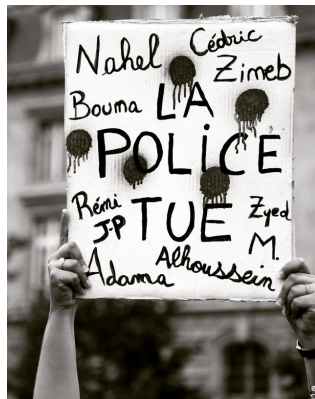 Nahel Cédric
Zineb
Bouna LA
POLiCE
Rémi TUE Zyed
J-P M.
Adama Alhoussein